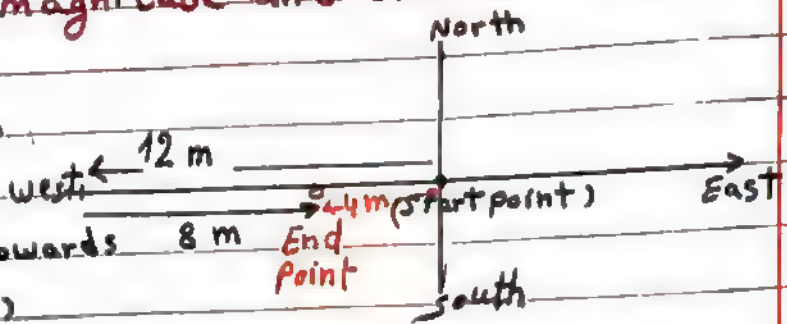 magnitude and
North
12 m
west
4m (start point)
East
owards 8 m
End
Point
)
South